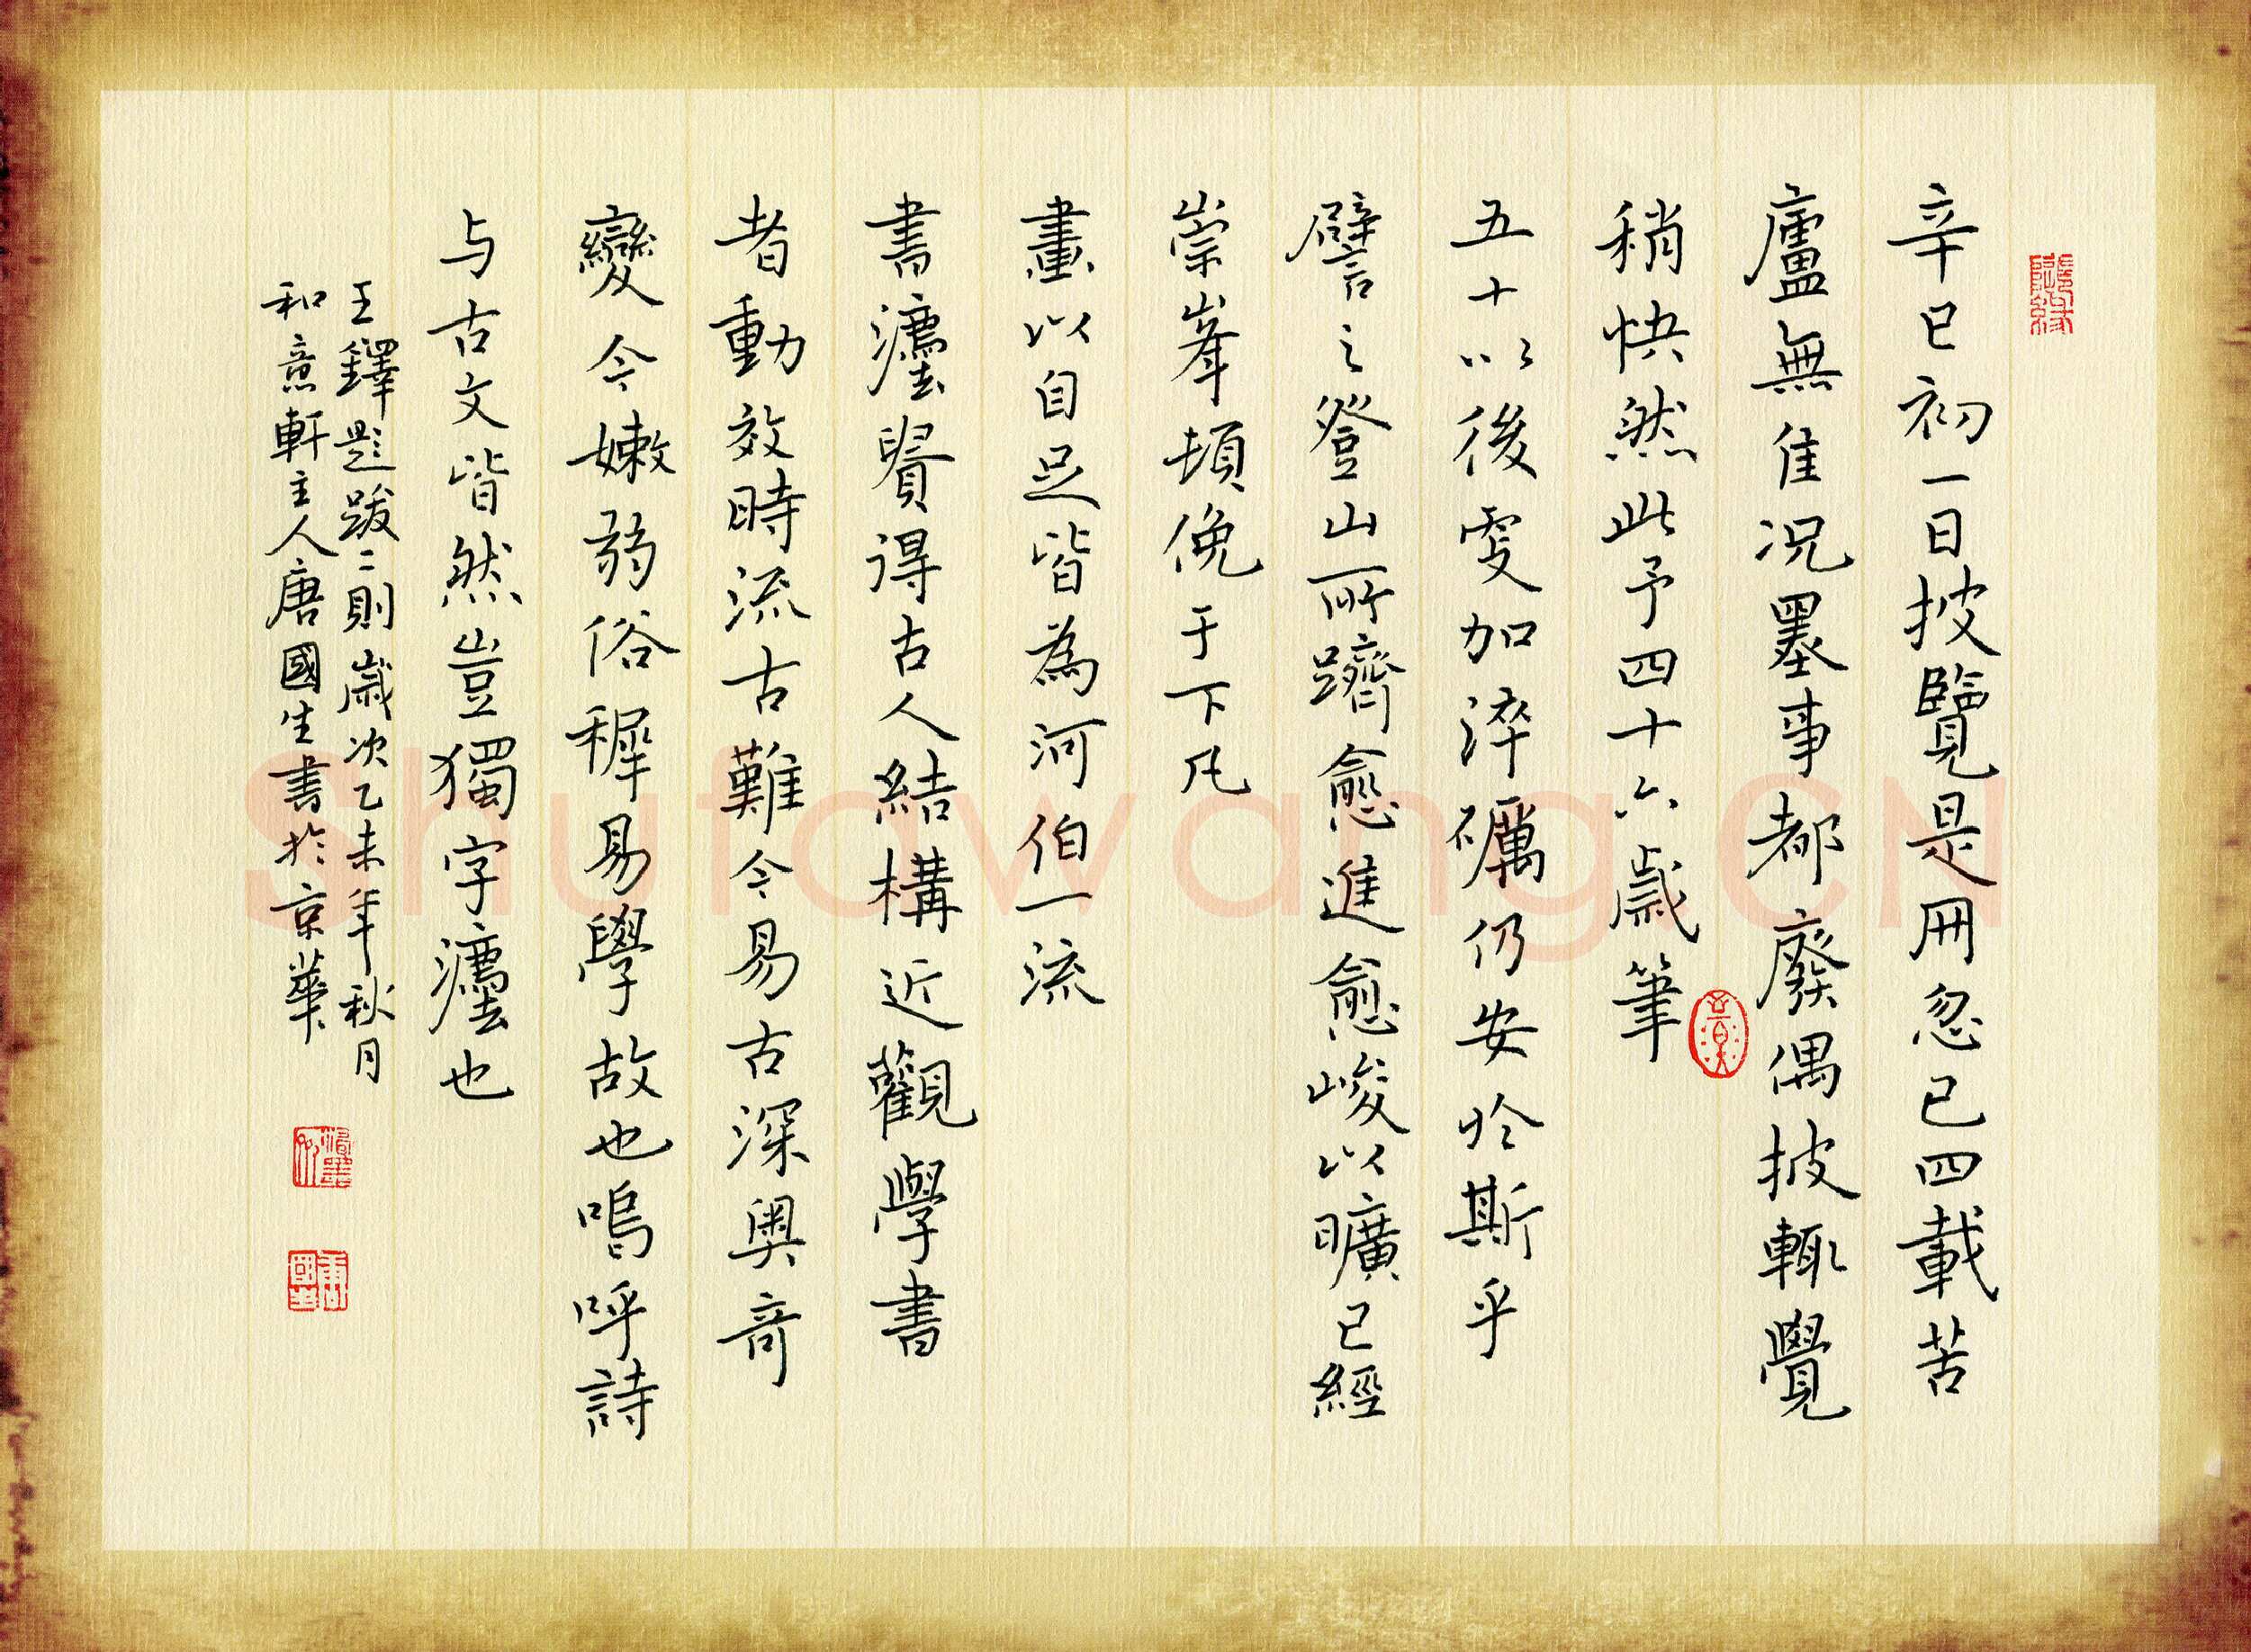 辛巳初一日披覽是冊忽已四載苦
廬無佳況墨事都廢偶披輒覺
稍快然此予四十六歲筆
五十以後更加淬礪仍安於斯乎
譬之登山所躋愈進愈峻以曠已經
崇峯頓俛于下凡
畫以自足皆為河伯一流
書灋貴得古人結構近觀學書
者動效時流古難今易古深奧奇
變今嫩弱俗穉易學故也嗚呼詩
与古文皆然豈獨字灋也
王鐸題跋二則歲次乙未年秋月
和意軒主人唐國生書於京華
唐國生
Shufawang.CN